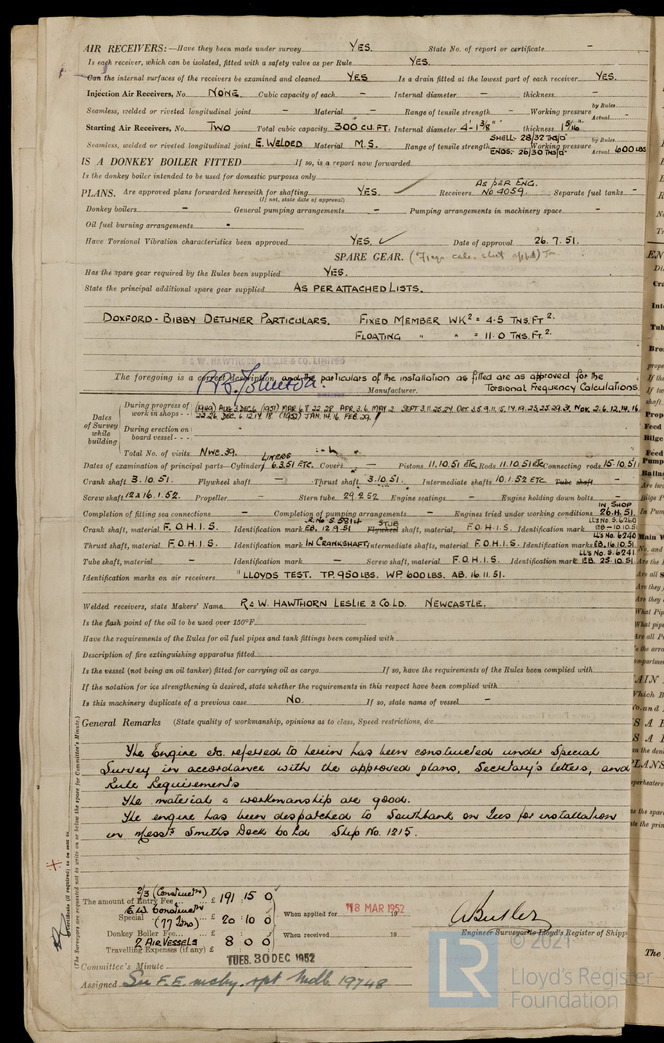 AIR RECEIVERS:—Have they been made under survey YES. State No. of report or certificate –
Is each receiver, which can be isolated, fitted with a safety valve as per Rule YES.
Can the internal surfaces of the receivers be examined and cleaned YES Is a drain fitted at the lowest part of each receiver YES.
Injection Air Receivers, No. NONE. Cubic capacity of each – Internal diameter – thickness –
Seamless, welded or riveted longitudinal joint – Material – Range of tensile strength – Working pressure by Rules Actual –
Starting Air Receivers, No. TWO Total cubic capacity 300 CU.FT. Internal diameter 4'-1 3/8" thickness 1 5/16"
Seamless, welded or riveted longitudinal joint E.WELDED Material M.S. Range of tensile strength SHELL- 28/32 TNS/□" ENDS- 26/30 TNS/□" Working pressure by Rules Actual 600 LBS
IS A DONKEY BOILER FITTED If so, is a report now forwarded
Is the donkey boiler intended to be used for domestic purposes only
PLANS. Are approved plans forwarded herewith for shafting YES. Receivers AS PER ENG. No 4059. Separate fuel tanks –
(If not, state date of approval)
Donkey boilers – General pumping arrangements – Pumping arrangements in machinery space –
Oil fuel burning arrangements –
Have Torsional Vibration characteristics been approved YES. ✓ Date of approval 26.7.51.
SPARE GEAR.
Has the spare gear required by the Rules been supplied YES.
State the principal additional spare gear supplied AS PER ATTACHED LISTS.
DOXFORD-BIBBY DETUNER PARTICULARS. FIXED MEMBER WK² = 4.5 TNS.FT².
FLOATING " " = 11.0 TNS.FT².
R & W. HAWTHORN LESLIE & CO. LIMITED
The foregoing is a correct description, and the particulars of the installation as fitted are as approved for the
Manufacturer. Torsional Frequency Calculations.
Dates of Survey while building
During progress of work in shops - -
During erection on board vessel - - -
Total No. of visits NWC. 39.
Dates of examination of principal parts—Cylinders LINERS 6.3.51 ETC. Covers – Pistons 11.10.51 ETC. Rods 11.10.51 ETC. Connecting rods 15.10.51
Crank shaft 3.10.51. Flywheel shaft – Thrust shaft 3.10.51. Intermediate shafts 10.1.52 ETC. Tube shaft –
Screw shaft 12 & 16.1.52. Propeller – Stern tube 29.2.52 Engine seatings – Engine holding down bolts –
Completion of fitting sea connections – Completion of pumping arrangements – Engines tried under working conditions IN SHOP 26.11.51.
Crank shaft, material F.O.H.I.S. Identification mark EB. 12.9.51 Flywheel STUB shaft, material, F.O.H.I.S. Identification mark LL's No. S.6260 EB-10.10.51
Thrust shaft, material F.O.H.I.S. Identification mark IN CRANKSHAFT Intermediate shafts, material F.O.H.I.S. Identification marks LL's No. 6240 EB. 16.10.51
Tube shaft, material – Identification mark – Screw shaft, material F.O.H.I.S. Identification mark LL's No. S.6241 EB. 25.10.51
Identification marks on air receivers "LLOYDS TEST. TP.950LBS. WP 600LBS. AB. 16.11.51.
Welded receivers, state Makers' Name R & W. HAWTHORN LESLIE & CO LD. NEWCASTLE.
Is the flash point of the oil to be used over 150°F.
Have the requirements of the Rules for oil fuel pipes and tank fittings been complied with
Description of fire extinguishing apparatus fitted
Is the vessel (not being an oil tanker) fitted for carrying oil as cargo If so, have the requirements of the Rules been complied with
If the notation for ice strengthening is desired, state whether the requirements in this respect have been complied with
Is this machinery duplicate of a previous case No. If so, state name of vessel –
General Remarks (State quality of workmanship, opinions as to class, Speed restrictions, &c.
The Engine etc. referred to herein has been constructed under Special
Survey in accordance with the approved plans, Secretary's letters, and
Rule Requirements
The material & workmanship are good.
The engine has been despatched to Southbank on Tees for installation
in Messrs Smiths Dock Co Ld Ship No. 1215.
2/3 (Constructn)
The amount of Entry Fee £ 191 : 15 : 0
E.W. Constructn
Special (77 Tns) £ 20 : 10 : 0 When applied for 18 MAR 1952
Donkey Boiler Fee
2 AIR VESSELS £ 8 : 0 : 0 When received 19
Travelling Expenses (if any) £
A Butler
Engineer Surveyor to Lloyd's Register of Shipp
TUES. 30 DEC 1952
Committee's Minute
Assigned See F.E. mchy. rpt Mdb 19748
© 2021
LR
Lloyd's Register
Foundation